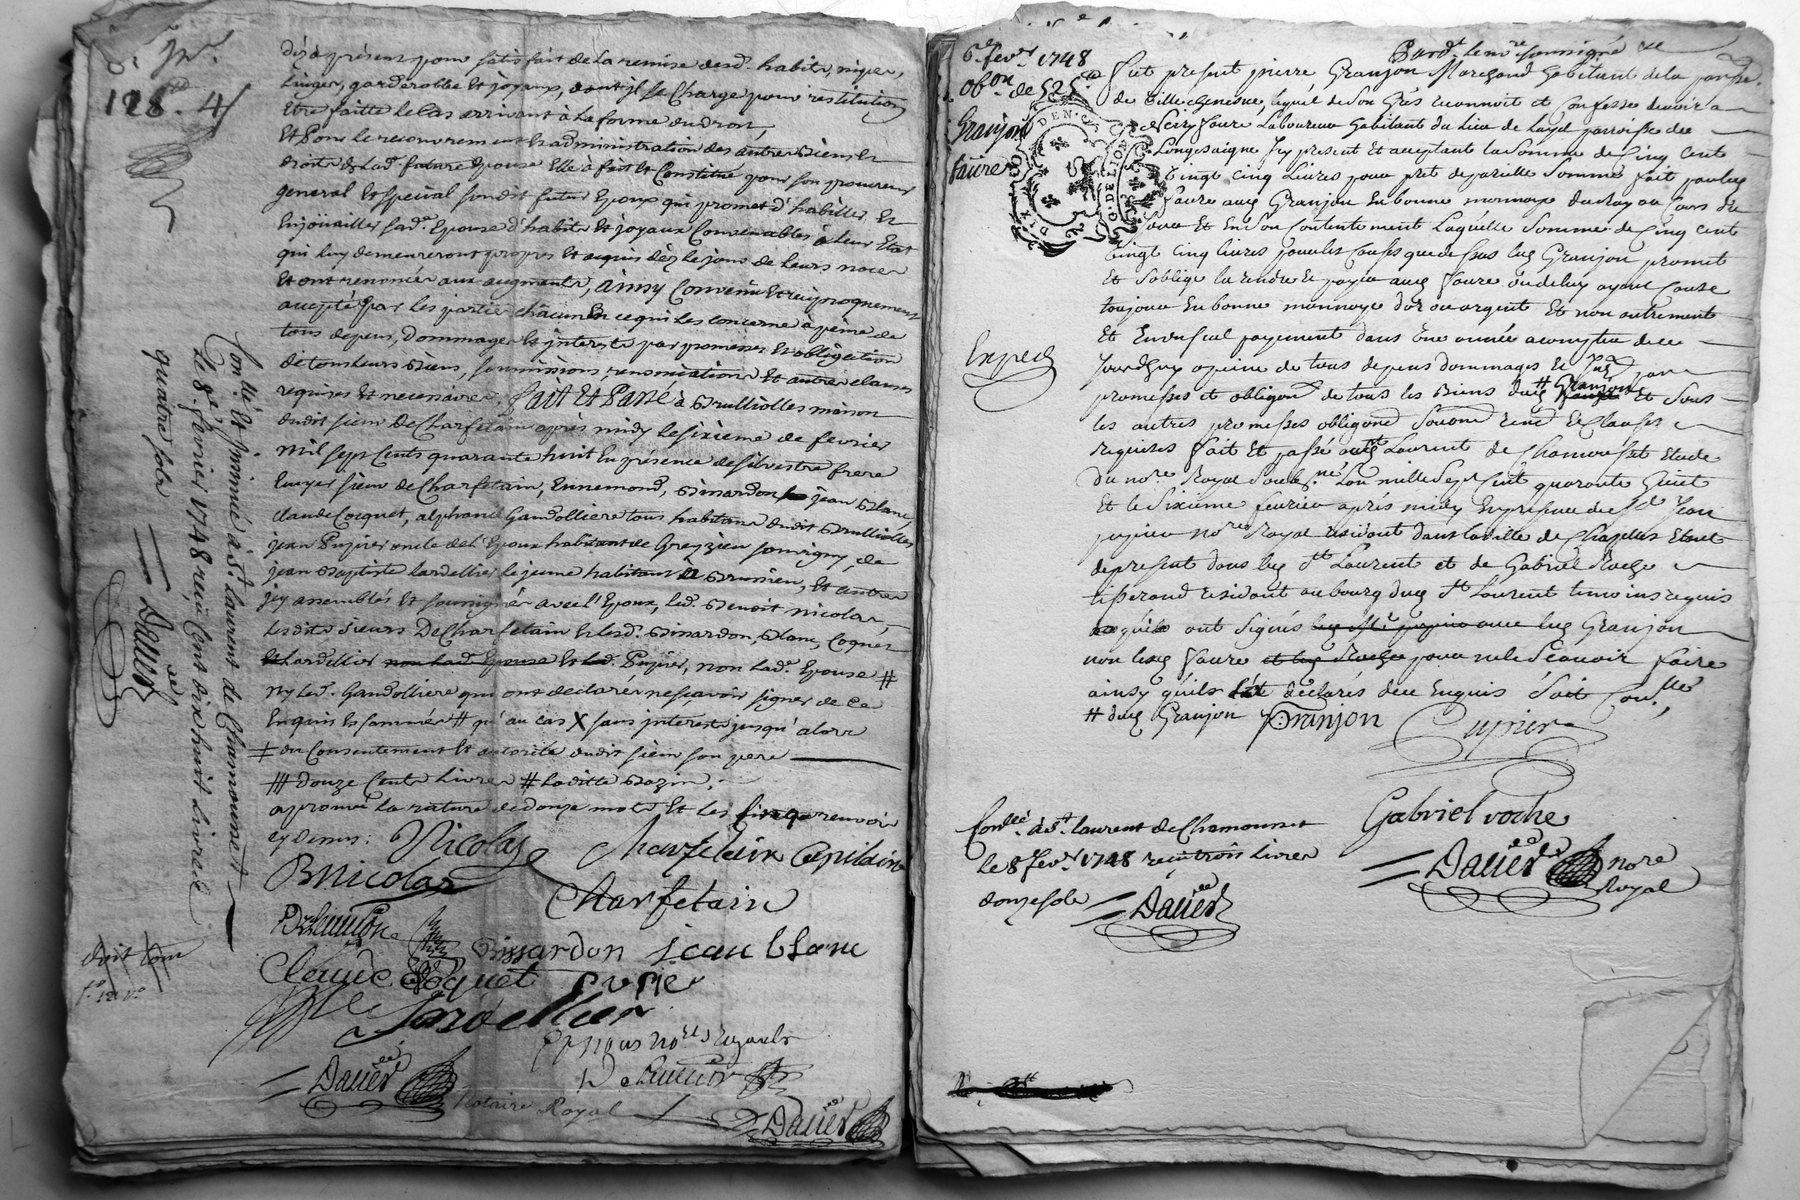 118ᵗᵗ 4ˢ
dez à présent pour satisfait de la remise desd. habits, nipes,
linges, garderobbe et joyaux, dont il se charge pour restitution
Etre faitte le cas arrivant à la forme du droit,
Et Pour le recouvrement et administration des autres biens et
droits de lad. future Epouse Elle à fait et Constitué pour son procureur
general et special sondit futur Epoux qui promet d'habiller et
Enjoüailler sad. Epouse d'habits et joyaux Convenables à leur Etat
qui luy demeureront propres et acquis dèz le jour de leurs noces
Et ont renoncés aux augments, ainsy Convenu et reciproquement
accepté par les parties châcun En ce qui les concerne à peine de
tous depens, Dommages et interests par promesses et obligation
de tous leurs biens, soumissions renonciations et autres clauses
requises et necessaires, fait et Passé à Brulliolles maison
dudit sieur De Charfetain après midy le sixieme de fevrier
mil sept cents quarante huit En présence de silvestre frere
Ecuyer sieur de Charfetain, Ennemond, Bissardon jean Blanc,
Claude Cocquet, alphonce Gandolliere tous habitans dudit Brulliolles
jean Pupier oncle de l'Epoux habitant de Greyzieu souvigny, de
jean Baptiste Lardellier le jeune habitant à Brussieu, et autres
icy assemblés et soussignés avec l'Epoux, led. Benoit nicolas,
lesdits sieurs De Charfetain et lesd. Bissardon, Blanc, Coquet
et Lardellier non lad. Epouse et led. Pupier, non lad. Epouse #
ny led. Gandolliere qui ont declarés ne sçavoir signer de ce
Enquis et sommés # qu'au cas X sans interests jusqu'alors
‡ du Consentement et autorité dudit sieur son pere
# douze Cents livres # laditte Bazin,
aprouvé la rature de douze mots et les renvois
cy dessus: Nicolas Charfetain Capitaine
BNicolas Charfetain
Bissardon jean blanc
Claude Coquet Pupier
Lardellier
Et nous no.res Royaux
Daverèdé
Notaire Royal
Daverèdé
Con.llé et insinué à S.t laurent de Chamousset
le 8.e fevrier 1748 reçu Cent dix huit livres
quatre sols
Daverèdé
droit Com
Pard.t le no.re soussigné
6.e fev.er 1748
ob.on de 525ᵗᵗ
Granjon
faure
Exped.
DEN.C
G. DE LYON
Fut present pierre Granjon Marchand habitant de la paroisse
de Villechenesve, lequel de son Grés reconnoit et Confesse devoir a
faure Laboureur habitant du lieu de Layd parroisse de
Longesaigne Icy present et acceptant la Somme de Cinq Cent
vingt cinq livres pour pret de pareille somme fait par led.
faure aud. Granjon En bonne monnoye du Roy au Cours de
jour et En son Contentement Laquelle Somme de Cinq cent
vingt cinq livres pour les Causes que dessus led. Granjon promet
et s'oblige la rendre et payer aud. faure ou de luy ayant Cause
toujours En bonne monnoye d'or ou argent Et non autrement
Et En un seul payement dans une année a compter de ce
jourd'huy a peine de tous depens dommages et Int. par
promesses et obligaon de tous les Biens dud. # Granjon et sous
les autres promesses obligons soumons renons Et Clauses
requises Fait Et passé aud. S.t Laurent de Chamousset Etude
du no.re Royal soubs.né L'an mille Sept Cent quarante huict
Et le Sixieme fevrier aprés midy En presence de S.r Jean
pupier no.re Royal residant dans la ville de Chazelles Etant
de present dans led. S.t Laurent et de Gabriel Roche
tisserand residant au bourg dud. S.t Laurent temoins requis
ont Signés led. M.e pupier avec led. Granjon
non led. faure et led. Roche pour ne le Scavoir faire
ainsy qu'ils ont déclarés dece Enquis Soit Con.llé
# dud. Granjon PGranjon Pupier
Gabriel roche
Daverèdé no.re
Royal
Con.llé à S.t laurent de Chamousset
le 8 fev.er 1748 reçu trois livres
douze sols
Daverèdé